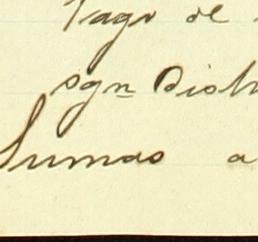 Pago de
sgn Dist
Sumas a